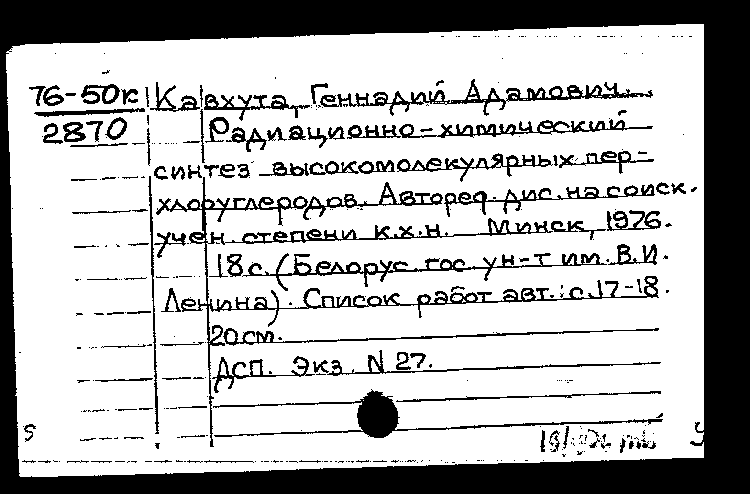 76-50к Кавхута, Геннадий Адамович.
2870 Радиационно-химический
синтез высокомолекулярных пер-
хлоруглеродов. Автореф. дис. на соиск.
учен. степени к.х.н. Минск, 1976.
18с. (Белорус. гос. ун-т им. В.И.
Ленина). Список работ авт.: с.17-18.
20см.
ДСП. Экз. N 27.